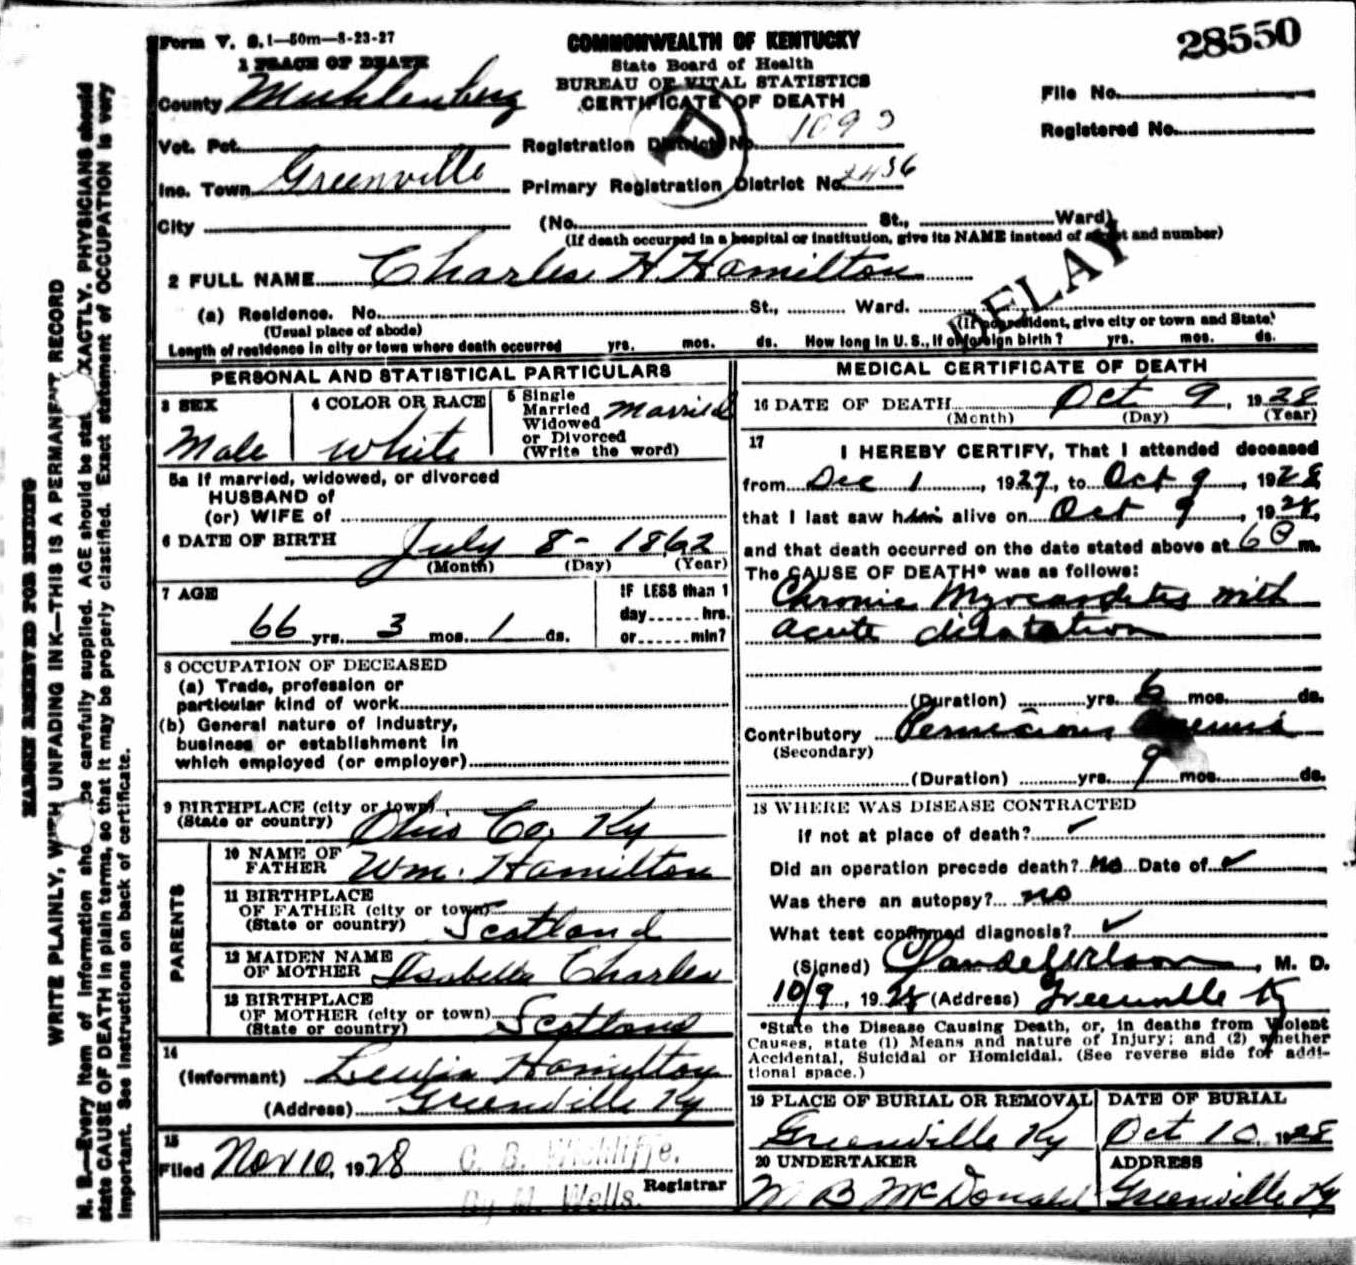 Form V. S. 1—50m—8-23-27
COMMONWEALTH OF KENTUCKY
State Board of Health
BUREAU OF VITAL STATISTICS
CERTIFICATE OF DEATH
28550
1 PLACE OF DEATH
County Muhlenberg
File No.
Vot. Pct. Registration District No. 109
Registered No.
Inc. Town Greenville Primary Registration District No. 2436
City (No. St., Ward)
(If death occurred in a hospital or institution, give its NAME instead of street and number)
2 FULL NAME Charles H. Hamilton
DELAY
(a) Residence. No. St., Ward.
(Usual place of abode) (If nonresident, give city or town and State)
Length of residence in city or town where death occurred yrs. mos. ds. How long in U. S., if of foreign birth? yrs. mos. ds.
PERSONAL AND STATISTICAL PARTICULARS
3 SEX Male
4 COLOR OR RACE White
5 Single Married Widowed or Divorced (Write the word) Married
5a If married, widowed, or divorced
HUSBAND of
(or) WIFE of
6 DATE OF BIRTH July 8- 1862
(Month) (Day) (Year)
7 AGE
66 yrs. 3 mos. 1 ds.
IF LESS than 1
day hrs.
or min?
8 OCCUPATION OF DECEASED
(a) Trade, profession or
particular kind of work
(b) General nature of industry,
business or establishment in
which employed (or employer)
9 BIRTHPLACE (city or town)
(State or country) Ohio Co. Ky
PARENTS
10 NAME OF
FATHER Wm. Hamilton
11 BIRTHPLACE
OF FATHER (city or town)
(State or country) Scotland
12 MAIDEN NAME
OF MOTHER Isabella Charles
13 BIRTHPLACE
OF MOTHER (city or town)
(State or country) Scotland
14
(Informant) Lewis Hamilton
(Address) Greenville Ky
15
Filed Nov 10, 1928 C. B. Wickliffe.
Registrar
By M. Wells.
MEDICAL CERTIFICATE OF DEATH
16 DATE OF DEATH Oct 9, 1928
(Month) (Day) (Year)
17
I HEREBY CERTIFY, That I attended deceased
from Dec 1, 1927, to Oct 9, 1928,
that I last saw him alive on Oct 9, 1928,
and that death occurred on the date stated above at 6 P m.
The CAUSE OF DEATH* was as follows:
Chronic Myocarditis with
acute dilatation
(Duration) yrs. 6 mos. ds.
Contributory Pernicious
(Secondary)
(Duration) yrs. 9 mos. ds.
18 WHERE WAS DISEASE CONTRACTED
if not at place of death? ✓
Did an operation precede death? No Date of ✓
Was there an autopsy? no
What test confirmed diagnosis? ✓
(Signed) Claude Wilson, M. D.
10/9, 1928 (Address) Greenville Ky
*State the Disease Causing Death, or, in deaths from Violent
Causes, state (1) Means and nature of Injury; and (2) whether
Accidental, Suicidal or Homicidal. (See reverse side for addi-
tional space.)
19 PLACE OF BURIAL OR REMOVAL
Greenville Ky
DATE OF BURIAL
Oct 10, 1928
20 UNDERTAKER
M B McDonald
ADDRESS
Greenville Ky
MARGIN RESERVED FOR BINDING
WRITE PLAINLY, WITH UNFADING INK—THIS IS A PERMANENT RECORD
N. B.—Every item of information should be carefully supplied. AGE should be stated EXACTLY. PHYSICIANS should
state CAUSE OF DEATH in plain terms, so that it may be properly classified. Exact statement of OCCUPATION is very
important. See instructions on back of certificate.